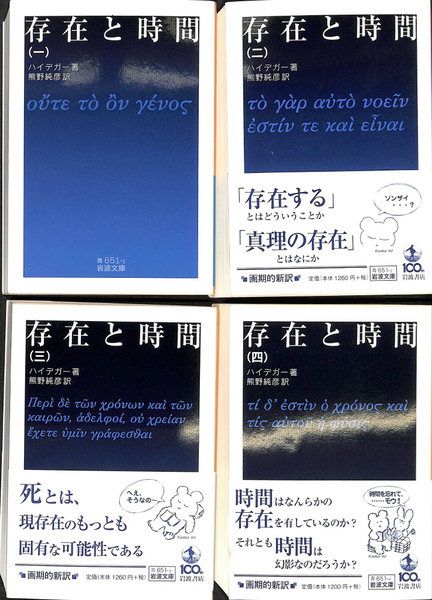 存在と時間
(一)
ハイデガー著
熊野純彦訳
οὔτε τὸ ὂν γένος
青 651-1
岩波文庫
存在と時間
(二)
ハイデガー著
熊野純彦訳
τὸ γὰρ αὐτὸ νοεῖν
ἐστίν τε καὶ εἶναι
「存在する」
とはどういうことか
「真理の存在」
とはなにか
ソンザイ
・・・?
画期的新訳
定価(本体 1260円+税)
青 651-2
岩波文庫
100年
岩波書店
存在と時間
(三)
ハイデガー著
熊野純彦訳
Περὶ δὲ τῶν χρόνων καὶ τῶν
καιρῶν, ἀδελφοί, οὐ χρείαν
ἔχετε ὑμῖν γράφεσθαι
死とは、
現存在のもっとも
固有な可能性である
へえ、
そうなの〜
画期的新訳
定価(本体 1260円+税)
青 651-3
岩波文庫
100年
岩波書店
存在と時間
(四)
ハイデガー著
熊野純彦訳
τί δ' ἐστὶν ὁ χρόνος καὶ
τίς αὐτοῦ ἡ φύσις
時間はなんらかの
存在を有しているのか?
それとも時間は
幻影なのだろうか?
時間を忘れて、
……モウ!
画期的新訳
定価(本体 1260円+税)
青 651-4
岩波文庫
100年
岩波書店